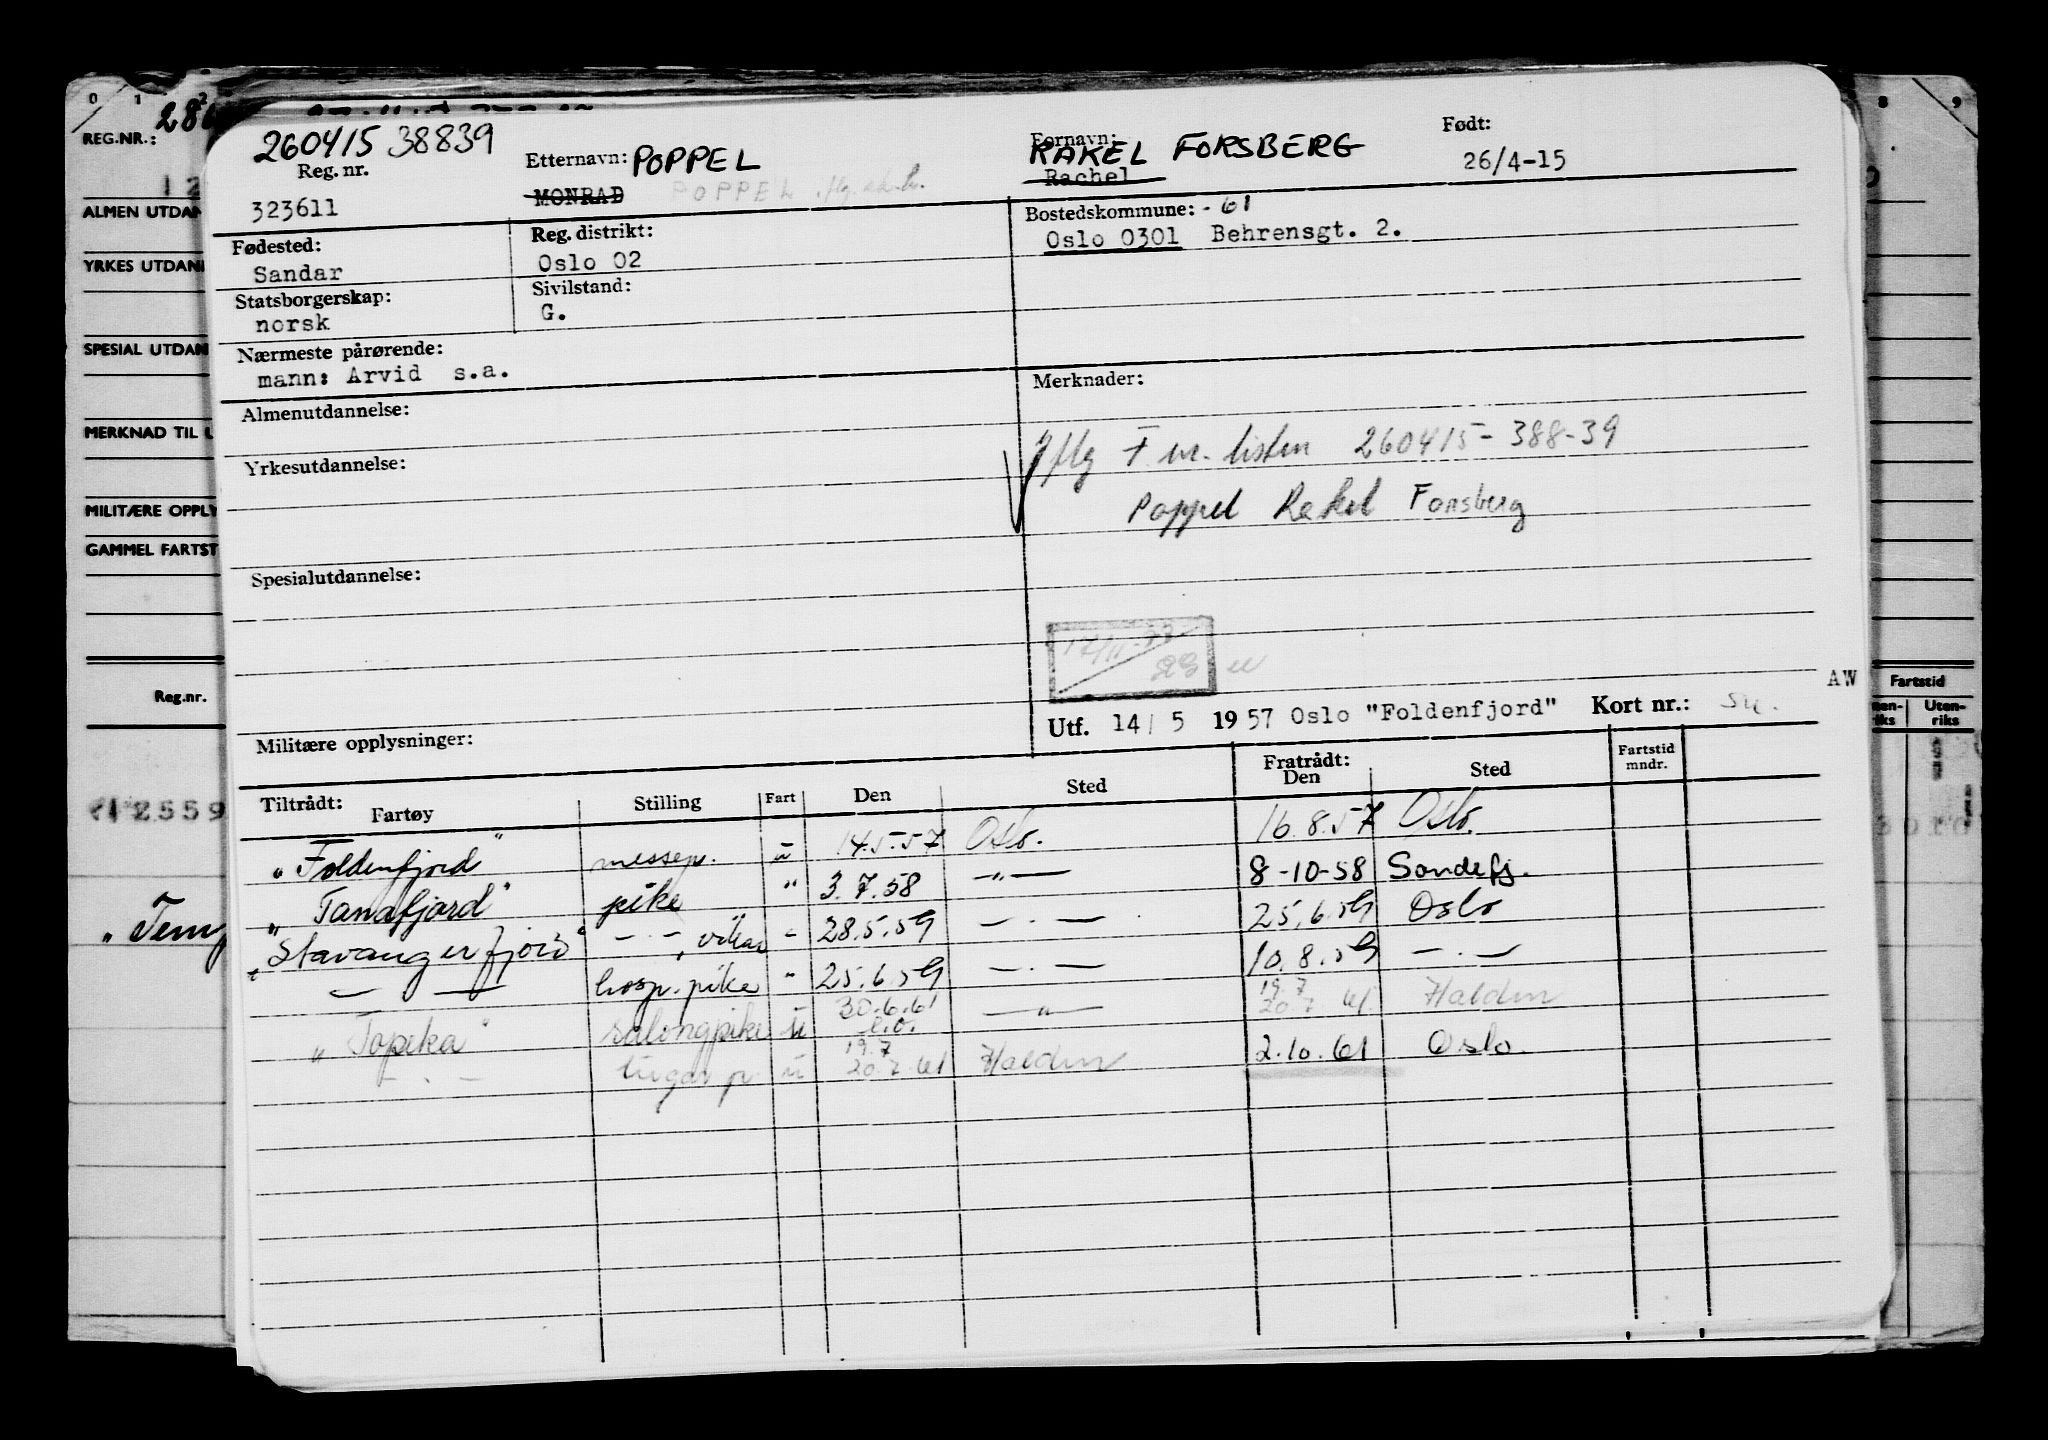 0 1 2
8 9
REG.NR.:
ALMEN UTDAN
YRKES UTDAN
SPESIAL UTDAN
MERKNAD TIL U
MILITÆRE OPPLY
GAMMEL FARTST
Reg.nr.
2559
Fartstid
Uten-
riks
260415 38839
Reg. nr.
323611
Etternavn: POPPEL
MONRAD POPPEL
Fornavn:
RAKEL FORSBERG
Rachel
Født:
26/4-15
Fødested:
Sandar
Reg. distrikt:
Oslo 02
Bostedskommune: - 61
Oslo 0301 Behrensgt. 2.
Statsborgerskap:
norsk
Sivilstand:
G.
Nærmeste pårørende:
mann: Arvid s.a.
Almenutdannelse:
Yrkesutdannelse:
Spesialutdannelse:
Militære opplysninger:
Merknader:
Iflg F nr. listen 260415-388-39
Poppel Rakel Forsberg
AW
Utf. 14/ 5 1957 Oslo "Foldenfjord" Kort nr.:
Tiltrådt: Fartøy Stilling Fart Den Sted Fratrådt: Den Sted Fartstid mndr.
"Foldenfjord" messep. u 14.5.57 Oslo. 16.8.57 Oslo.
"Tanafjord" pike " 3.7.58 —"— 8-10-58 Sandefj.
"Stavangerfjord" — " —, vikar " 28.5.59 — . — 25.6.59 Oslo
— — hosp. pike " 25.6.59 — . — 10.8.59 — . —
"Topeka" salongpike u 30.6.61 —"— 19.7 20.7.61 Halden
— . — lugar p. u 19.7 20.7.61 Halden 2.10.61 Oslo.